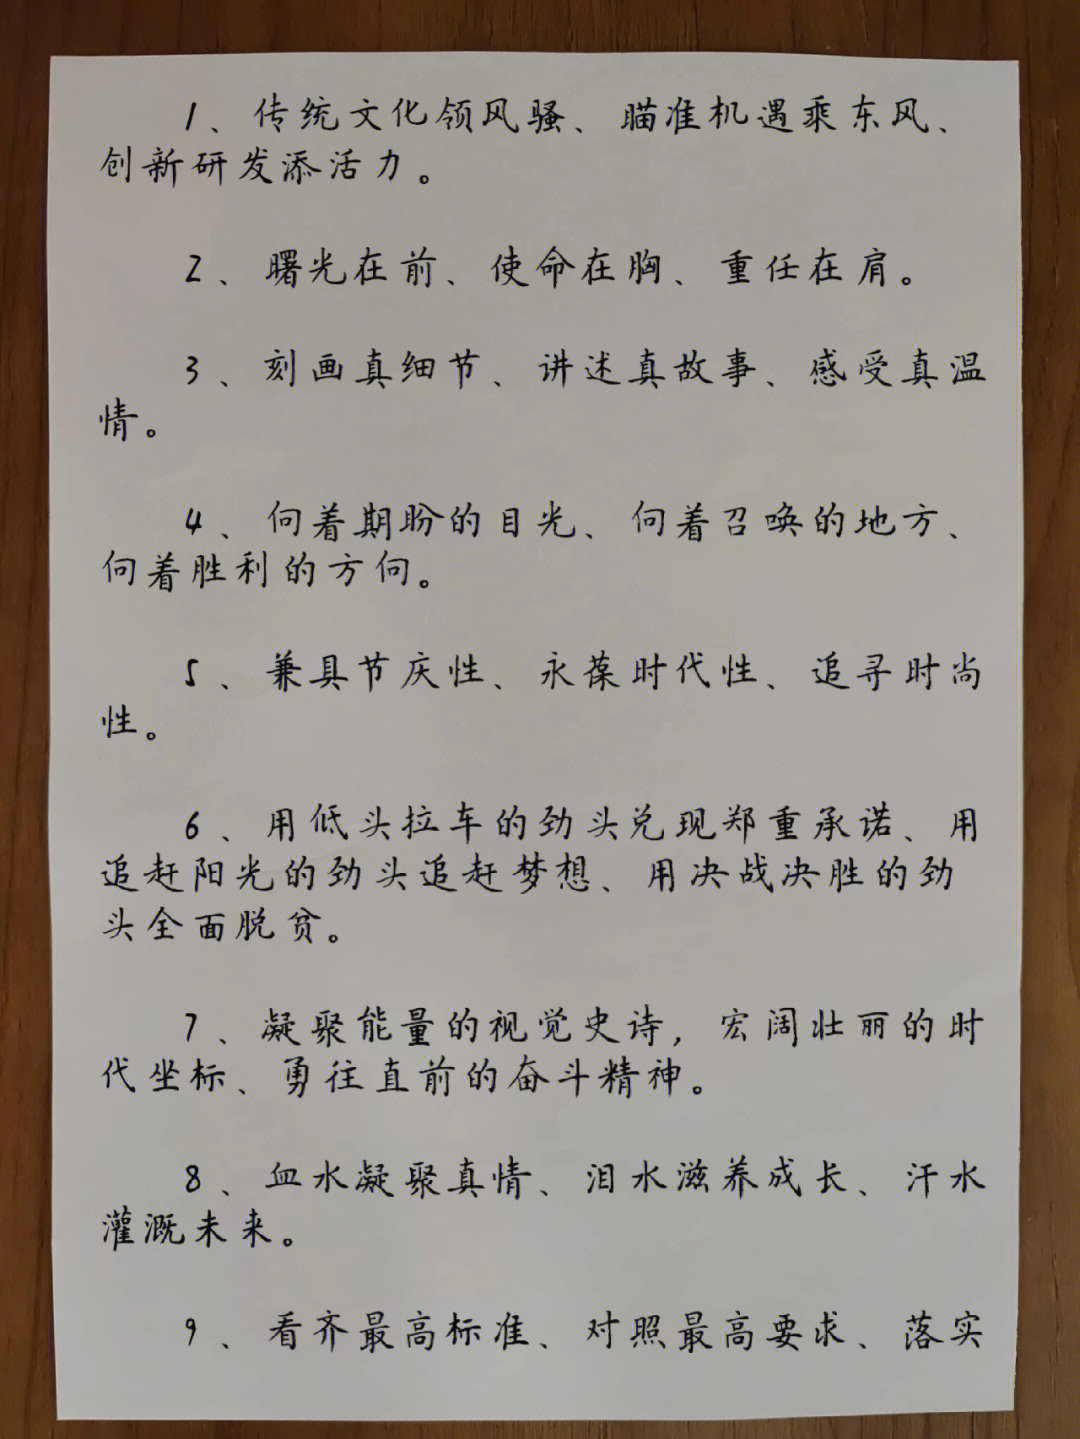 1、传统文化领风骚、瞄准机遇乘东风、
创新研发添活力。
2、曙光在前、使命在胸、重任在肩。
3、刻画真细节、讲述真故事、感受真温
情。
4、向着期盼的目光、向着召唤的地方、
向着胜利的方向。
5、兼具节庆性、永葆时代性、追寻时尚
性。
6、用低头拉车的劲头兑现郑重承诺、用
追赶阳光的劲头追赶梦想、用决战决胜的劲
头全面脱贫。
7、凝聚能量的视觉史诗，宏阔壮丽的时
代坐标、勇往直前的奋斗精神。
8、血水凝聚真情、泪水滋养成长、汗水
灌溉未来。
9、看齐最高标准、对照最高要求、落实